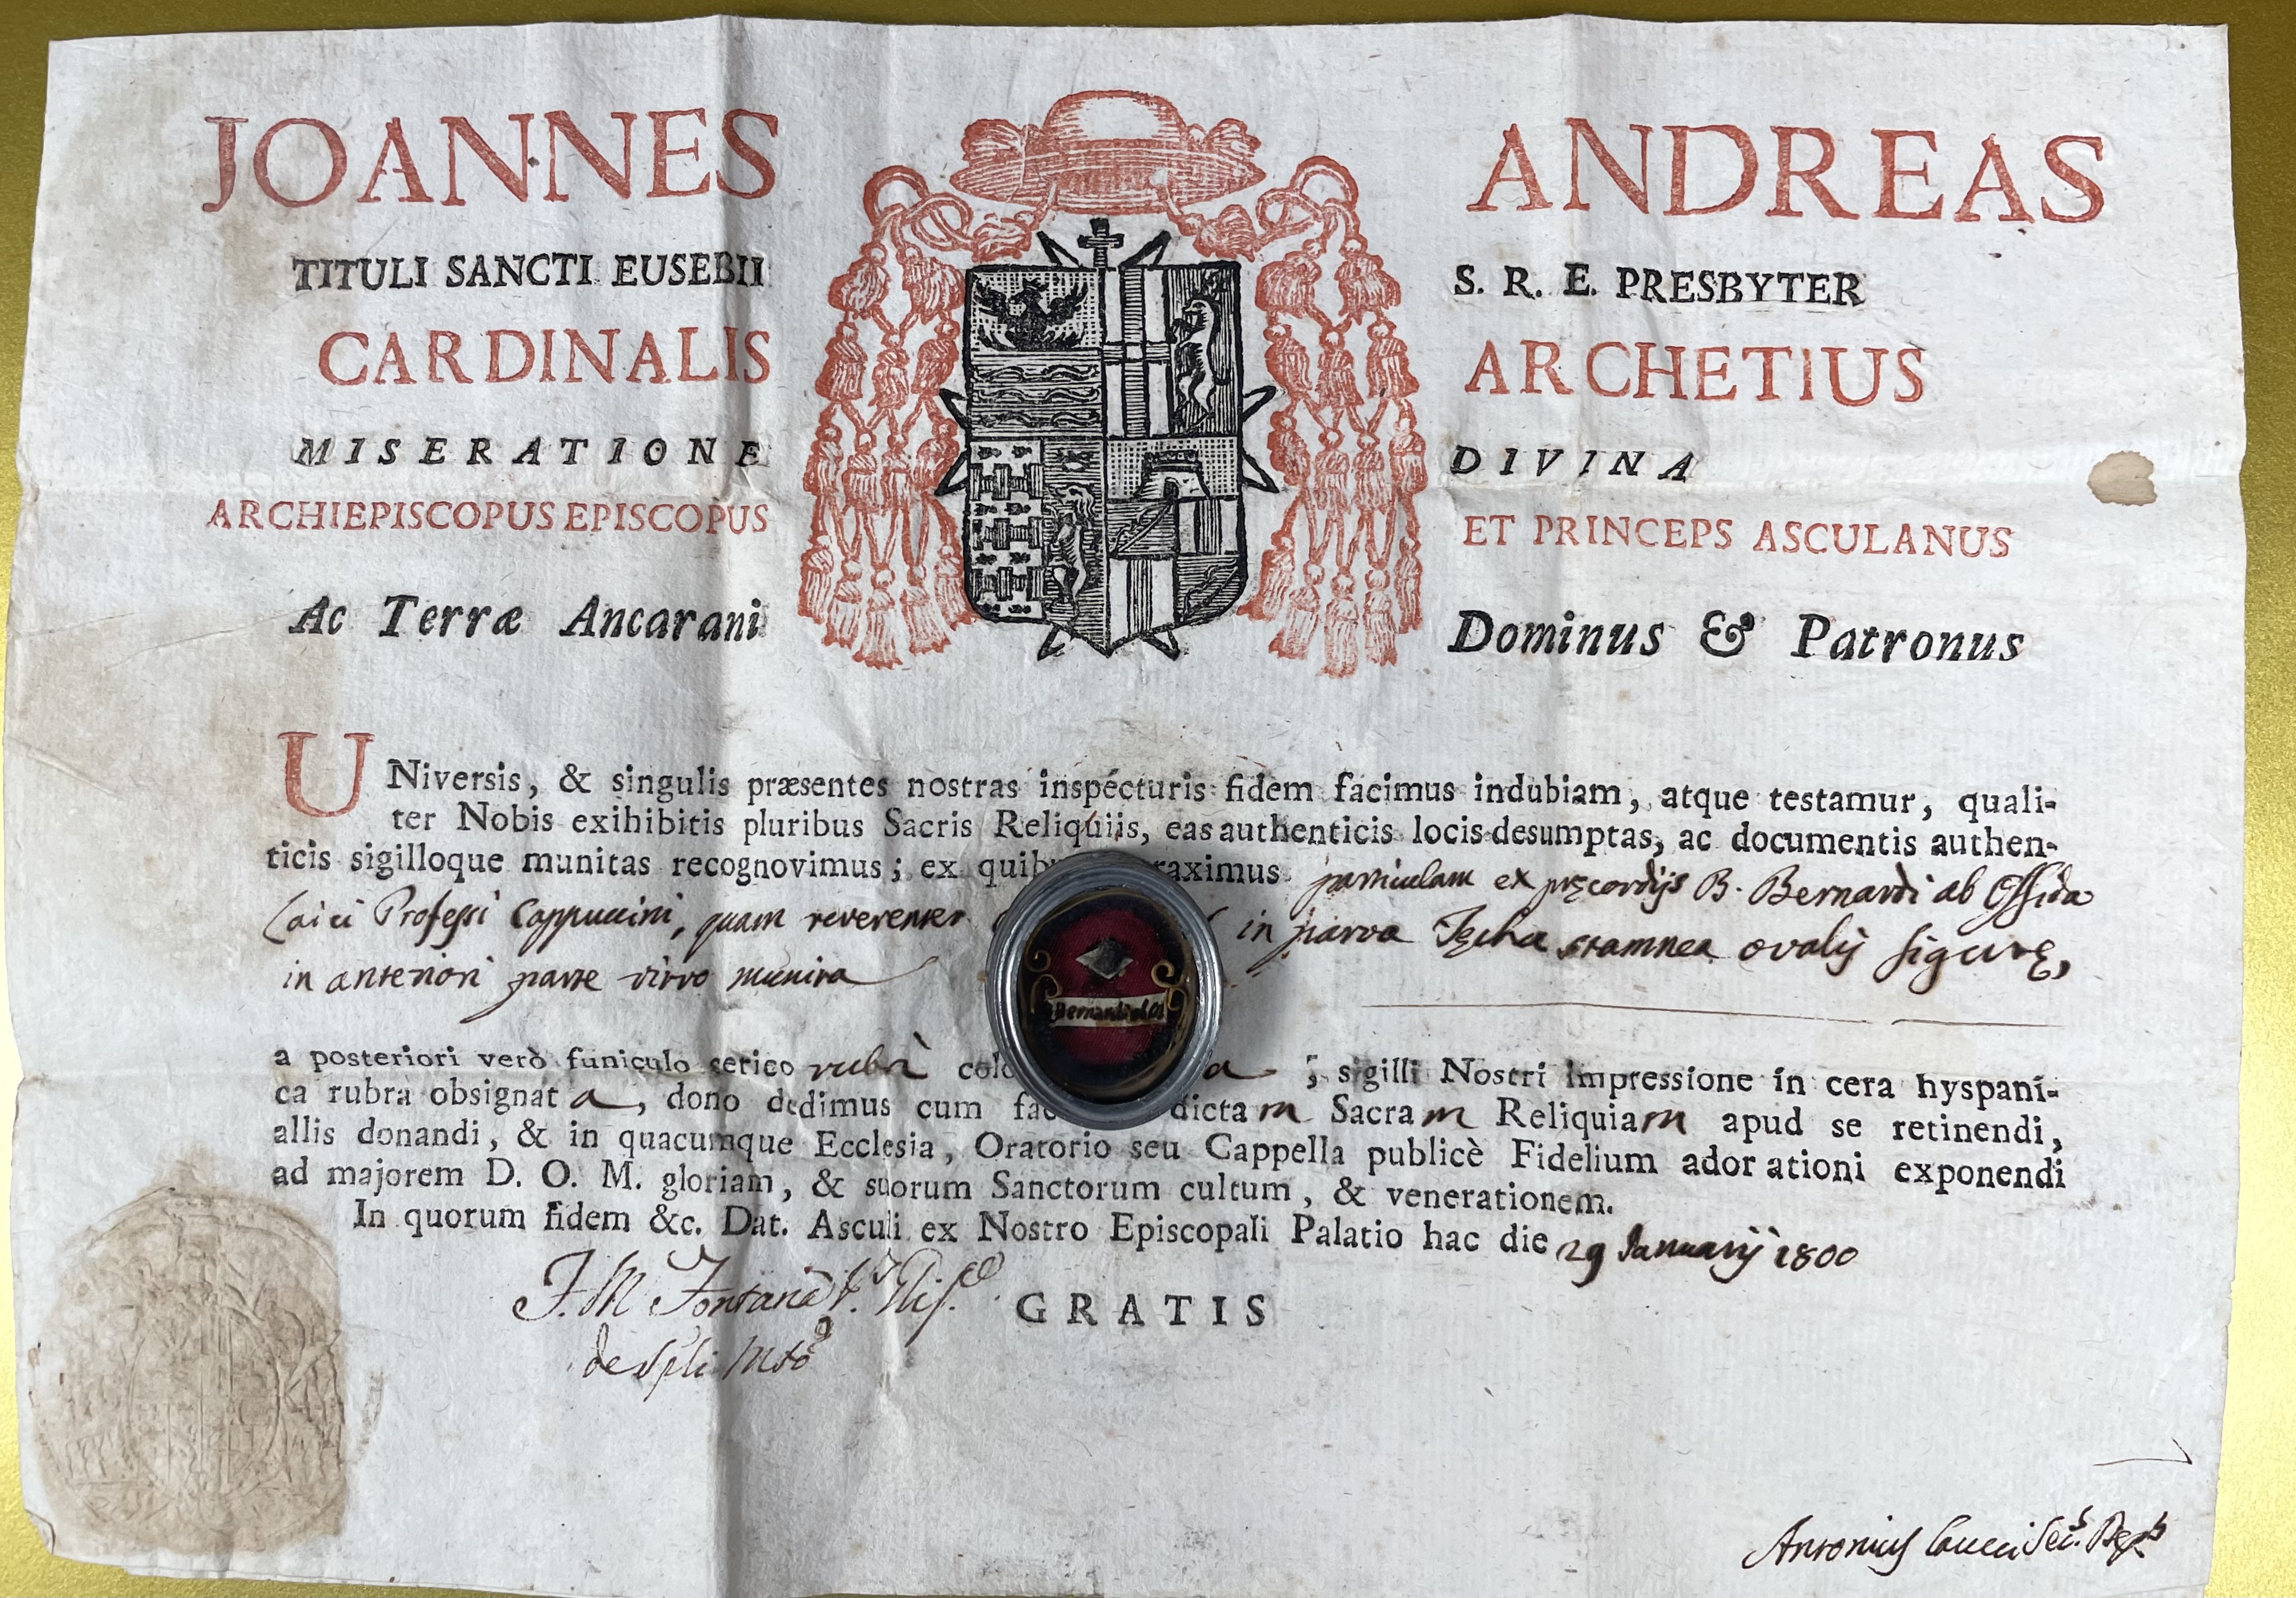 JOANNES ANDREAS
TITULI SANCTI EUSEBII S. R. E. PRESBYTER
CARDINALIS ARCHETIUS
MISERATIONE DIVINA
ARCHIEPISCOPUS EPISCOPUS ET PRINCEPS ASCULANUS
Ac Terræ Ancarani Dominus & Patronus
UNiversis, & singulis præsentes nostras inspécturis fidem facimus indubiam, atque testamur, quali-
ter Nobis exihibitis pluribus Sacris Reliquiis, eas authenticis locis desumptas, ac documentis authen-
ticis sigilloque munitas recognovimus; ex quib raximus particulam ex pręcordijs B. Bernardi ab Offida
Laici Professi Cappuccini, quam reverenter in parva Tęcha stamnea ovalis figurę,
in anteriori parte vitro munita
Bernardi ab Of
a posteriori verò funiculo serico rubri colo a, sigilli Nostri impressione in cera hyspani-
ca rubra obsignata, dono dedimus cum fac dictam Sacram Reliquiam apud se retinendi,
allis donandi, & in quacumque Ecclesia, Oratorio seu Cappella publicè Fidelium adorationi exponendi
ad majorem D. O. M. gloriam, & suorum Sanctorum cultum, & venerationem.
In quorum fidem &c. Dat. Asculi ex Nostro Episcopali Palatio hac die 29 Januarij 1800
J. M. Fontana
GRATIS
Antonius